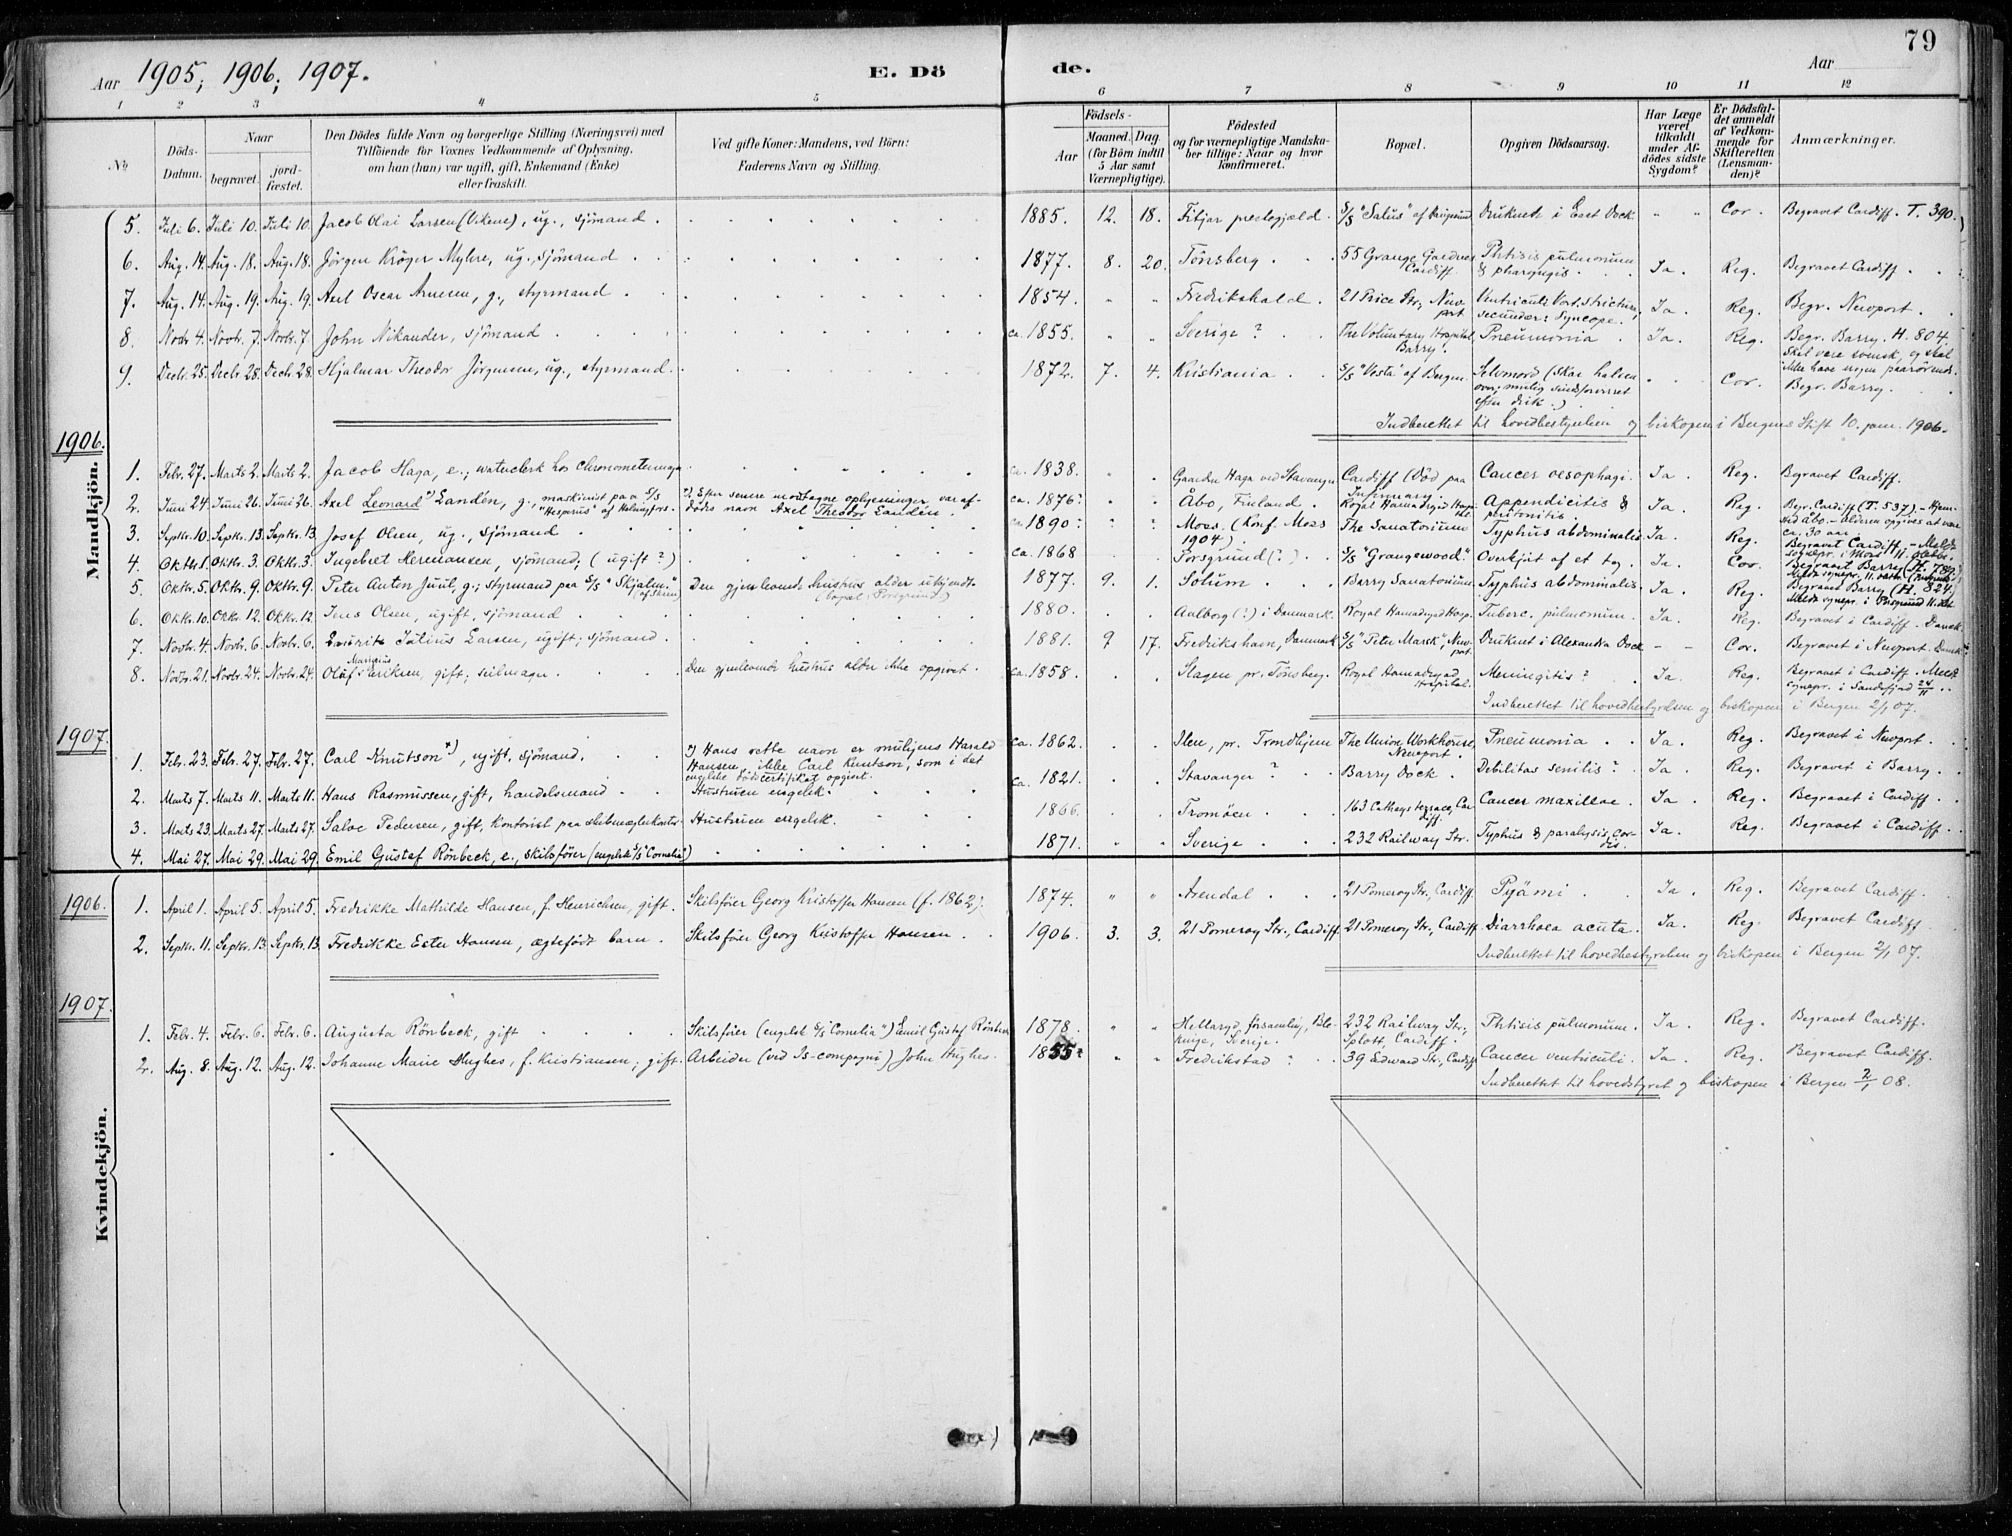 79
Aar 1905; 1906; 1907. E. Dö de. Aar
1 2 3 4 5 6 7 8 9 10 11 12
No
Döds-Datum.
Naar
begravet. jord-fæstet.
Den Dödes fulde Navn og borgerlige Stilling (Næringsvei) med
Tilföiende for Voxnes Vedkommende af Oplysning,
om han (hun) var ugift, gift, Enkemand (Enke)
eller fraskilt.
Ved gifte Koner: Mandens, ved Börn:
Faderens Navn og Stilling.
Födsels-
Aar Maaned. Dag.
(for Börn indtil
5 Aar samt
Værnepligtige).
Födested
og for værnepligtige Mandska-
ber tillige: Naar og hvor
konfirmeret.
Bopæl.
Opgiven Dödsaarsag.
Har Læge
været
tilkaldt
under Af-
dödes sidste
Sygdom?
Er Dödsfal-
det anmeldt
af Vedkom-
mende for
Skifteretten
(Lensman-
den)?
Anmærkninger.
Mandkjön.
5. Juli 6. Juli 10. Juli 10. Jacob Olai Larsen (Vikene), ug., sjömand. 1885. 12. 18. Fitjar prestegjæld. S/S "Salus" af Druknet i East Dock. " " Cor. Begravet Cardiff. T. 390.
6. Aug. 14. Aug. 18. Aug. 18. Jörgen Kröger Myhre, ug., sjömand. 1877. 8. 20. Tönsberg. 55 Grange Gardens Cardiff. Phtisis pulmonum & pharyngis. Ja. Reg. Begravet Cardiff.
7. Aug. 14. Aug. 19. Aug. 19. Axel Oscar Arnesen, g., styrmand. 1854. " " Fredrikshald. 21 Price Str., Newport. Ventriculi: Vort. stricture, secundær: Syncope. Ja. Reg. Begr. Newport.
8. Novbr. 4. Novbr. 7. Novbr. 7 John Nikander, sjömand. ca. 1855. " " Sverige? The Voluntary Hospital, Barry. Pneumonia. Ja. Reg. Begr. Barry. H. 804. Skal være svensk, og skal ikke have nogen paarørende.
9. Decbr. 25. Decbr. 28. Decbr. 28. Hjalmar Theodor Jörgensen, ug., styrmand. 1872. 7. 4. Kristiania. S/S "Vesta" af Bergen. Selvmord (skar halsen over; mulig sindsforvirret efter drik.) Cor. Begr. Barry.
Indberettet til hovedbestyrelsen og biskopen i Bergens Stift 10. jan. 1906.
1906.
1. Febr. 27. Marts 2. Marts 2. Jacob Haga, e.; watuclerk hos chronometermager ca. 1838. Gaarden Haga ved Stavanger Cardiff (Död paa Infirmary. Cancer oesophagi. Ja. Reg. Begravet Cardiff.
2. Juni 24. Juni 26. Juni 26. Axel Leonard *) Landén, g., maskinist paa S/S "Hesperus" af Helsingfors. *) Efter senere modtagne oplysninger var afdödes navn Axel Theodor Landén. ca. 1876? Åbo, Finland. Royal Hamadryad Hospital. Appendicitis & peritonitis. Ja. Reg. Begr. Cardiff (T. 537). - Hjemsted Åbo. - Alderen opgives at være ca. 30 aar.
3. Septbr. 10. Septbr. 13. Septbr. 13 Josef Olsen, ug., sjömand ca 1890? Moss. (Konf. Moss 1904). The Sanatorium Typhus abdominalis Ja. Reg. Begravet Cardiff. - Meldt sognepr. i Moss 11. oktbr.
4. Oktbr. 1. Oktbr. 3. Oktbr. 3. Ingebret Hermansen, sjömand; (ugift?) ca. 1868 Porsgrund (?). S/S "Grangewood." Overkjört af et tog. Ja. Cor. Begravet Barry (H. 789.)
5. Oktbr. 5. Oktbr. 9. Oktbr. 9. Peter Anton Juul, g.; styrmand paa S/S "Skjalm." (af Skien) Den gjenlevende hustrus alder ubekjendt. (bopæl: Porsgrund) 1877. 9. 1. Solum. Barry Sanatorium. Typhus abdominalis. Ja. Reg. Begravet Barry (H. 824.) Meldt sognepr. i Porsgrund 11. okt
6. Oktbr. 10. Oktbr. 12. Oktbr. 12. Jens Olsen, ugift, sjömand 1880. Aalborg (?) i Danmark. Royal Hamadryad Hosp. Tuberc. pulmonum. Ja. Reg. Begravet i Cardiff. Dansk
7. Novbr. 4. Novbr. 6. Novbr. 6. Julius Larsen, ugift; sjömand. 1881. 9 17. Fredrikshavn, Danmark S/S "Peter Marsk", Newport. Druknet i Alexandra Dock - - Cor. Begravet i Newport. Dansk
8. Novbr. 21. Novbr. 24. Novbr. 24. Olaf Marinius Eriksen, gift; seilmager. Den gjenlevende hustrus alder ikke opgivet. ca. 1858. Slagen pr. Tönsberg. Royal Hamadryad Hospital. Meningitis? Ja. Reg. Begravet i Cardiff. Meldt sognepr. i Sandefjord 24/11.
Indberettet til hovedbestyrelsen og biskopen i Bergen 2/1 07.
1907.
1. Febr. 23. Febr. 27. Febr. 27. Carl Knutson *), ugift, sjömand. *) Hans rette navn er muligens Harald Hansen, ikke Carl Knutson, som i det engelske dödscertifikat opgivet. ca. 1862. Ilen, pr. Trondhjem The Union Workhouse, Newport. Pneumonia Ja. Reg. Begravet i Newport.
2. Marts 7. Marts 11. Marts 11. Hans Rasmussen, gift, handelsmand Hustruen engelsk. ca. 1821. Stavanger? Barry Dock. Debilitas senilis? Ja. Reg. Begravet i Barry.
3. Marts 23. Marts 27. Marts 27. Salve Pedersen, gift, kontorist paa skibsmæglerkontor. Hustruen engelsk. 1866. Tromöen. 163 Cathays terrace, Cardiff. Cancer maxillae. Ja. Reg. Begravet i Cardiff.
4. Mai 27. Mai 29. Mai 29. Emil Gustaf Rönbeck, e., skibsförer (engelsk S/S "Cornelia") 1871. " " Sverige. 232 Railway Str. Typhus & paralysis cordis. Ja. Reg. Begravet i Cardiff.
Kvindekjön.
1906.
1. April 1. April 5. April 5. Fredrikke Mathilde Hansen, f. Henrichsen, gift. Skibsförer Georg Kristoffer Hansen (f. 1862). 1874. " " Arendal. 21 Pomeroy Str., Cardiff. Pyämi. Ja. Reg. Begravet Cardiff.
2. Septbr. 11. Septbr. 13. Septbr. 13. Fredrikke Ester Hansen, ægtefödt barn. Skibsförer Georg Kristoffer Hansen. 1906. 3. 3. 21 Pomeroy Str., Cardiff. 21 Pomeroy Str., Cardiff. Diarrhoea acuta. Ja. Reg. Begravet Cardiff.
Indberettet til hovedbestyrelsen og biskopen i Bergen 2/1 07.
1907.
1. Febr. 4. Febr. 6. Febr. 6. Augusta Rönbeck, gift Skibsförer (engelsk S/S "Cornelia") Emil Gustaf Rönbeck 1878. " " Hellaryd, församling, Blekinge, Sverige. 232 Railway Str., Splott, Cardiff. Phtisis pulmonum. Ja. Reg. Begravet Cardiff.
2. Aug. 8. Aug. 12. Aug. 12. Johanne Marie Hughes, f. Kristiansen; gift. Arbeider (ved Is-compagni) John Hughes. 1855? " " Fredrikstad 39 Edward Str., Cardiff Cancer ventriculi. Ja. Reg. Begravet Cardiff.
Indberettet til hovedstyret og biskopen i Bergen 2/1 08.